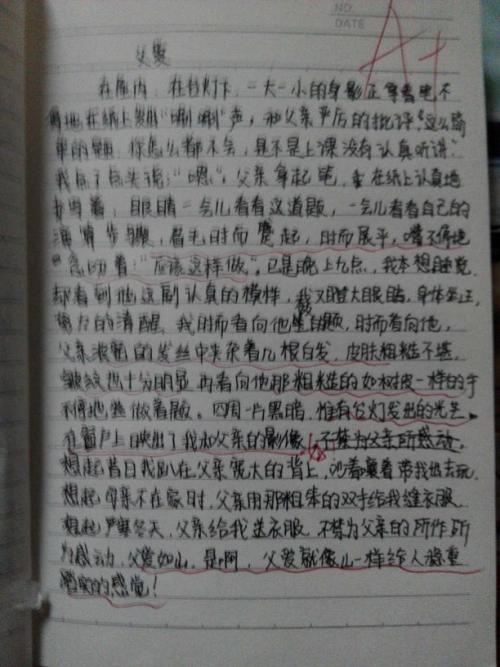 NO
DATE
A+
父爱
在屋内，在台灯下，一大一小的身影正
地在纸上发出"唰唰"声，和父亲严厉的批评："这么简
单的题，你怎么都不会，是不是上课没有认真听讲"
我点了点头说："嗯"，父亲拿起笔，在纸上认真地
着，眼睛一会儿看看这道题，一会儿看看自己的
演算步骤，眉毛时而蹙起，时而展平，嘴不停地
念叨着："应该这样做"。已是晚上九点，我本想睡觉，
却看到他这副认真的模样，我又瞪大眼睛，身体坐正，
努力的清醒。我时而看向他的题，时而看向他，
父亲浓黑的发丝中夹杂着几根白发，皮肤粗糙不堪，
皱纹也十分明显，再看向他那粗糙的如树皮一样的手
不停地做着题。四周一片黑暗，惟有台灯发出的光芒，
在窗户上映出了我和父亲的影像，不禁为父亲所感动，
想起昔日我趴在父亲宽大的背上，吵着嚷着带我出去玩，
想起母亲不在家时，父亲用那粗笨的双手给我缝衣服，
想起严寒冬天，父亲给我送衣服，不禁为父亲的所作所
为感动，父爱如山，是啊，父爱就像山一样给人稳重
踏实的感觉！